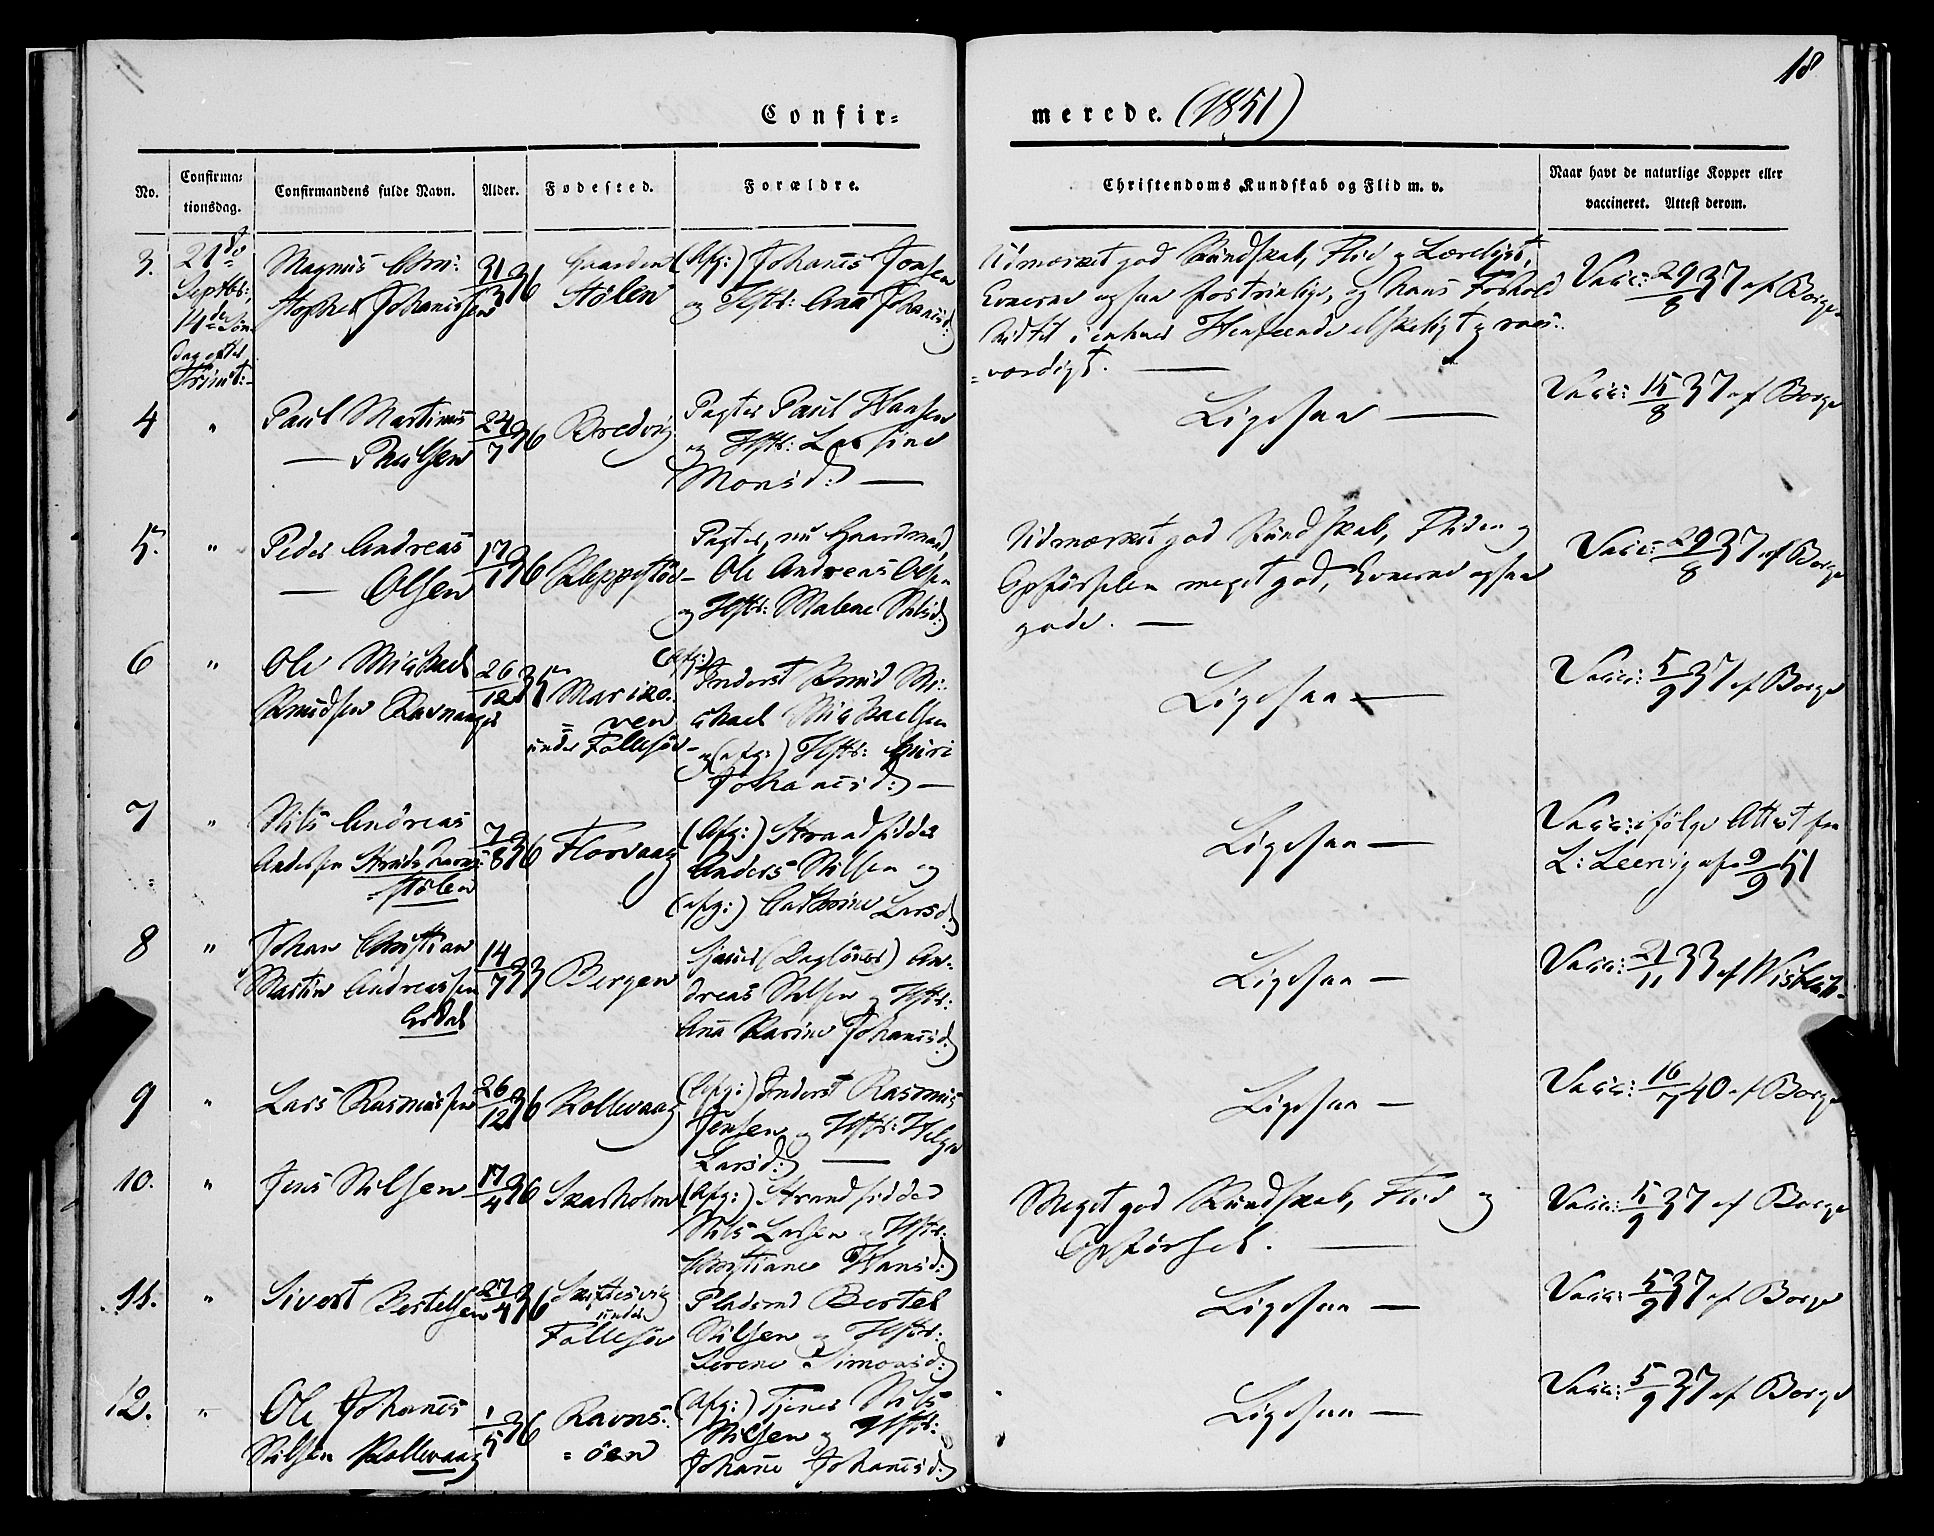 18
Confir=
merede. (1851)
No.
Confirma=
tionsdag.
Confirmandens fulde Navn.
Alder.
Fødested.
Forældre.
Christendoms Kundskab og Flid m. v.
Naar havt de naturlige Kopper eller
vaccineret. Attest derom.
3.
21de
Septbr:
14de Søn
dag efter
Trinit:
Magnus Chri:
stopher Johannessen
31/3 36
Gaarden
Stølen
(Afg:) Johanes Jonsen
og Hstr: Ana Johanisd:
Udmærket god Kundskab, Flid og Lærelyst,
Evnerne ogsaa fortrinlige, og hans Forhold
i enhver Henseende elskeligt og roes:
=værdigt.
Vacc: 29/8 37 af Borge
4
"
Paul Martinus
Paulsen
24/7 36
Bredvig
Pagter Paul Hansen
og Hstr:
Monsd:
Ligesaa
Vacc: 15/8 37 af Borge
5.
"
Peder Andreas
Olsen
17/1 36
Kleppestøe
Pagter, nu Gaardmand,
Ole Andreas Olsen
og Hstr: Malene Nilsd:
Udmærket god Kundskab, Fliden og
Opførselen meget god, Evnerne ogsaa
gode.
Vacc: 29/8 37 af Borge
6
"
Ole Michael
Knudsen Ravnanger
26/12 35
Mariko=
=ven
under Follesøe
(Afg:)
Inderst Knud Mi:
chael Michaelsen
og (afg:) Hstr: Guri
Johanesd:
Ligesaa
Vacc: 5/9 37 af Borge
7
"
Nils Andreas
Andersen
=stølen
7/8 36
Florvaag
(Afg:) Strandsidder
Anders Nilsen og
(afg:) Cathrine Larsd:
Ligesaa
Vacc: ifølge Attest fra
L: Leervig af 9/9 51
8
"
Johan Christian
Martin Andreassen
Ardal
14/7 33
Bergen
(Dagløner) An-
dreas Nilsen og Hstr:
Ana Karine Johanesd:
Ligesaa
Vacc: 21/11 33 af Wisbech
9
"
Lars Rasmussen
26/12 36
Rollevaag
(Afg:) Inderst Rasmus
Jensen og Hstr: Helga
Larsd:
Ligesaa
Vacc: 16/7 40 af Borge
10.
"
Jens Nilsen
17/4 36
Skarholm
(Afg:) Strandsidder
Nils Larsen og Hstr:
Christiane Hansd:
Meget god Kundskab, Flid og
Opførsel.
Vacc: 5/9 37 af Borge
11.
"
Sivert Bertelsen
27/4 36
Skiftesvig
under
Follesøe
Pladsmd Bertel
Nilsen og Hstr:
Serene Simonsd:
Ligesaa
Vacc: 5/9 37 af Borge
12.
"
Ole Johanes
Nilsen Rollevaag
1/5 36
Ravns:
=øen
(Afg:) Tjener Nils
Nilsen og Hstr:
Johane Johanesd:
Ligesaa
Vacc: 5/9 37 af Borge